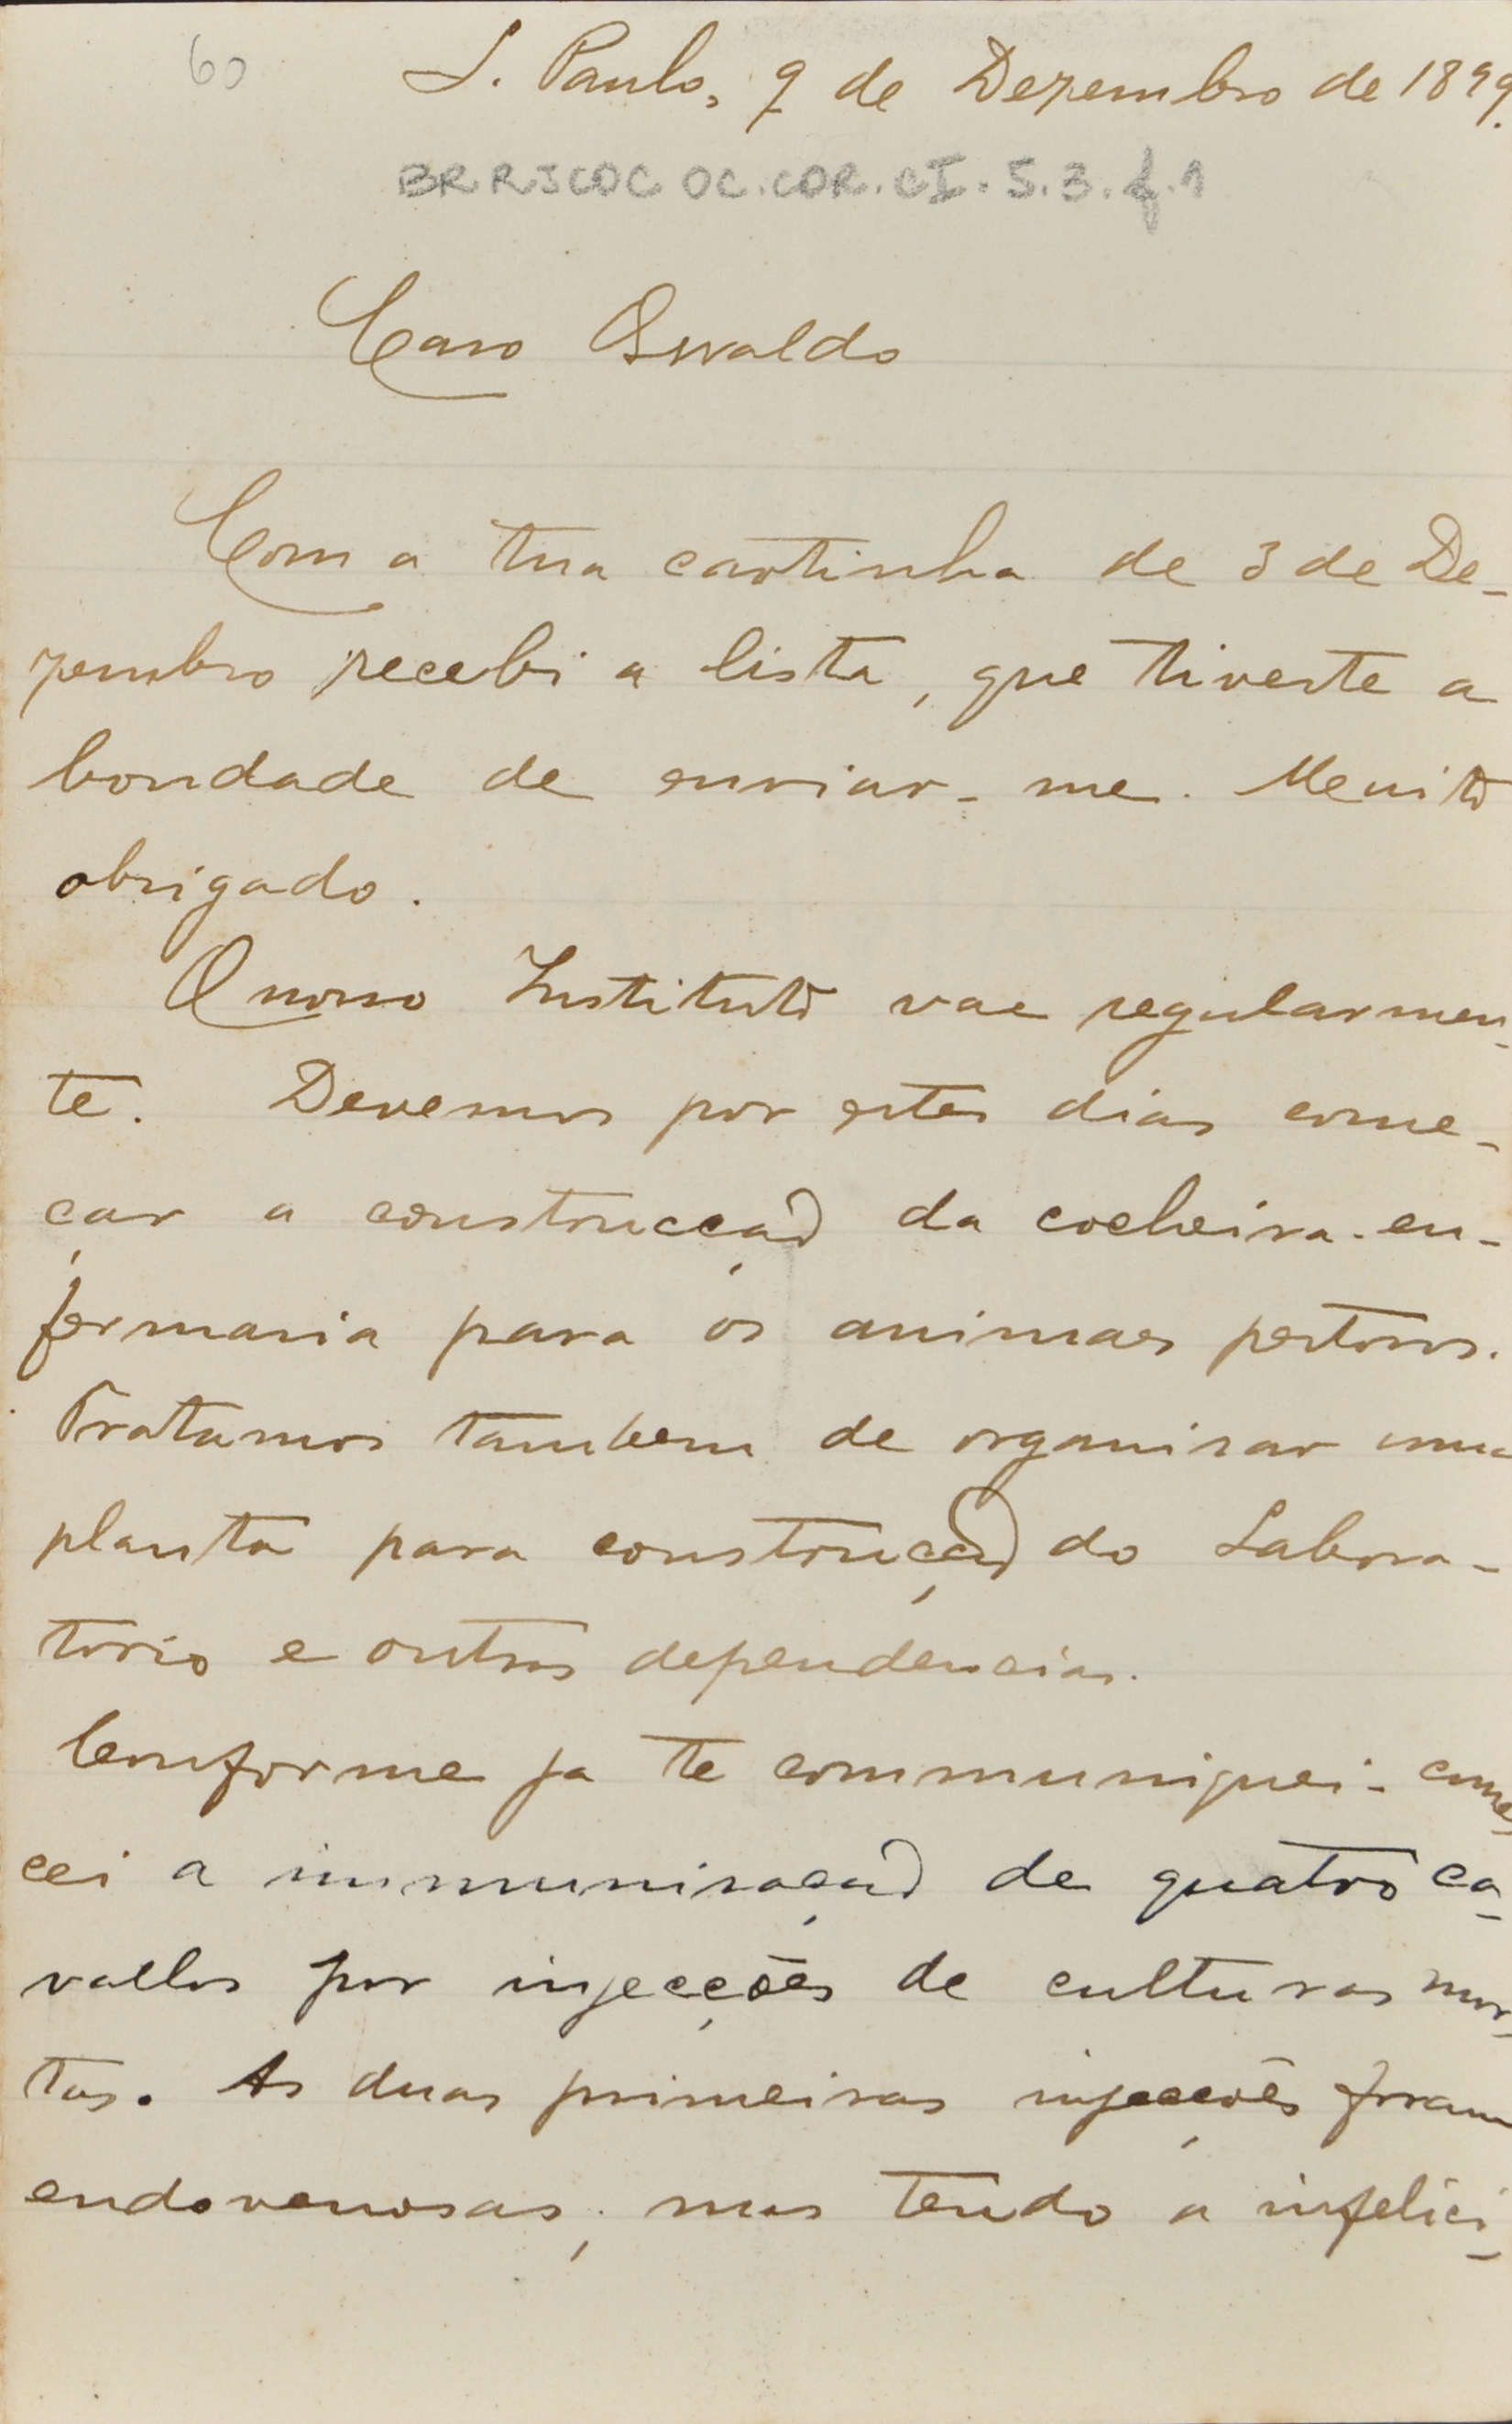 60
S. Paulo, 9 de Dezembro de 1899.
BR RJCOC OC.COR.CI.5.3.f.1
Caro Oswaldo
Com a tua cartinha de 3 de De-
zembro recebi a lista, que tiveste a
bondade de enviar-me. Muito
obrigado.
O nosso Instituto vae regularmen-
te. Devemos por estes dias come-
çar a construcção da cocheira-en-
fermaria para os animaes pestosos.
Tratamos tambem de organisar uma
planta para construcção do Labora-
torio e outras dependencias.
Conforme ja te communiquei- come-
cei a immunisação de quatro ca-
vallos por injecções de culturas mor-
tas. As duas primeiras injecções foram
endovenosas; mas tendo a infelici-